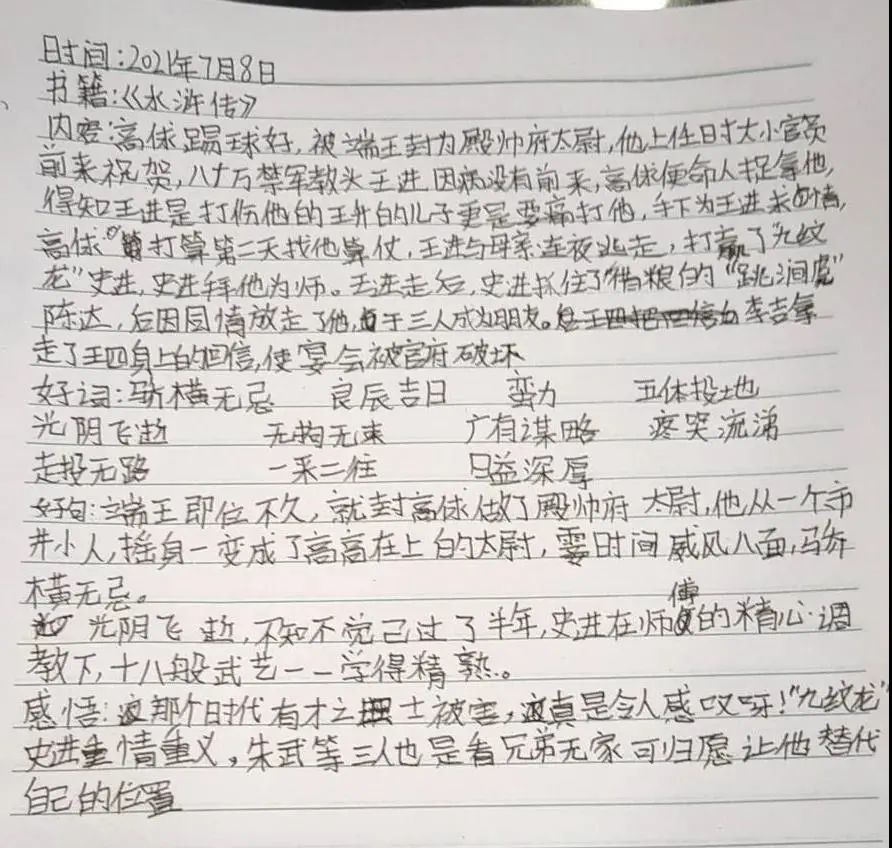 时间:2021年7月8日
书籍:《水浒传》
内容:高俅踢球好,被端王封为殿帅府太尉,他上任时大小官员
前来祝贺,八十万禁军教头王进因病没有前来,高俅便命人捉拿他,
得知王进是打伤他的王升的儿子更是要痛打他,手下为王进求情,
高俅打算第二天找他算仗,王进与母亲连夜逃走,打赢了"九纹
龙"史进,史进拜他为师。王进走后,史进抓住了"借粮"的"跳涧虎"
陈达,后因同情放走了他,于三人成为朋友。李吉拿
走了王四身上的回信,使宴会被官府破坏
好词:骄横无忌 良辰吉日 蛮力 五体投地
光阴飞逝 无拘无束 广有谋略 疼突流涕
走投无路 一来二往 日益深厚
好句:端王即位不久,就封高俅做了殿帅府太尉,他从一个市
井小人,摇身一变成了高高在上的太尉,霎时间威风八面,骄
横无忌。
光阴飞逝,不知不觉已过了半年,史进在师傅的精心调
教下,十八般武艺一一学得精熟。
感悟:那个时代有才之士被害,真是令人感叹呀!"九纹龙"
史进重情重义,朱武等三人也是看兄弟无家可归愿让他替代
自己的位置